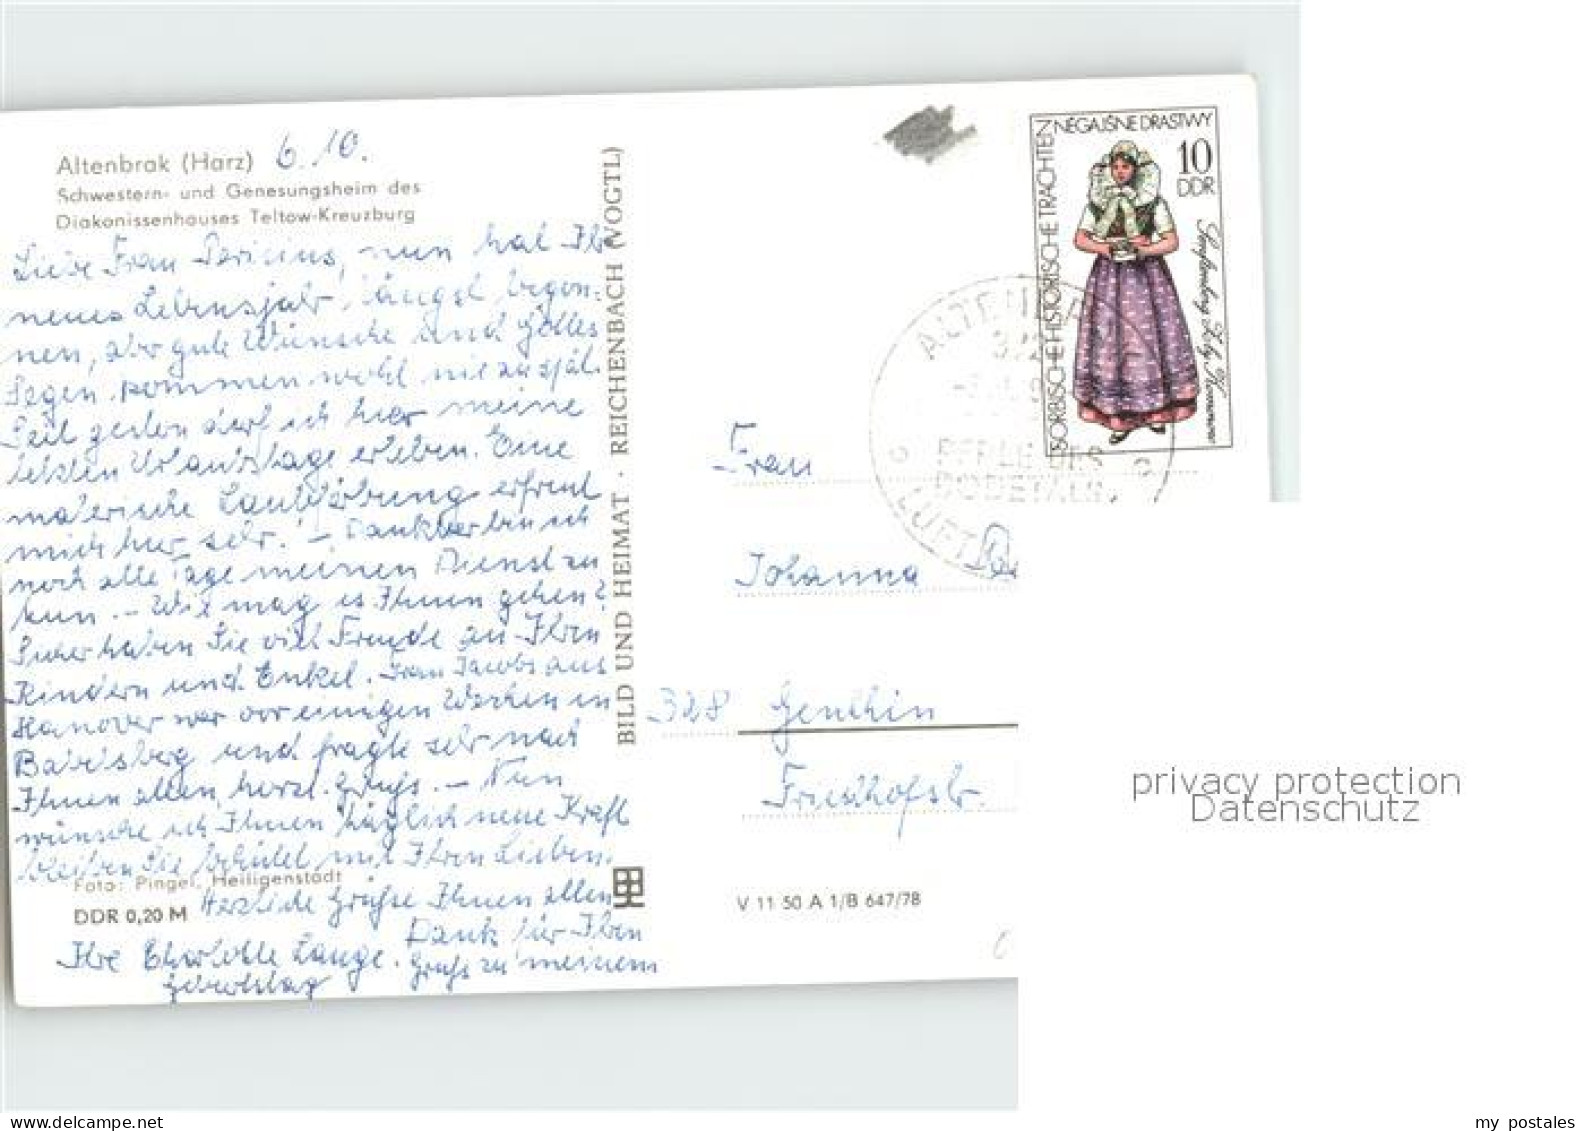 Altenbrak (Harz) 6.10.
Schwestern- und Genesungsheim des
Diakonissenhauses Teltow-Kreuzburg
Liebe Frau, nun hat Ihr
neues Lebensjahr längst begon-
nen, aber gute Wünsche und Gottes
Segen kommen wohl nie zu spät.
Seit gestern darf ich hier meine
letzten Urlaubstage erleben. Eine
malerische Laubfärbung erfreut
mich hier sehr. – Dankbar bin ich
noch alle Tage meinen Dienst zu
tun. – Wie mag es Ihnen gehen?
Sicher haben Sie viel Freude an Ihren
Kindern und Enkel. Frau Jacobs aus
Hanover war vor einigen Wochen in
Babelsberg und fragte sehr nach
Ihnen allen, herzl. Gruß. – Nun
wünsche ich Ihnen täglich neue Kraft
bleiben Sie behütet mit Ihren Lieben.
Foto: Pingel, Heiligenstadt
Herzliche Grüße Ihnen allen
DDR 0,20 M
Ihre Charlotte Lange. Dank für Ihren
Gruß zu meinem
Geburtstag
BILD UND HEIMAT · REICHENBACH (VOGTL)
V 11 50 A 1/B 647/78
SORBISCHE HISTORISCHE TRACHTEN
NĚGAJŠNE DRASTWY
10
DDR
ALTENBRAK
PERLE DES
BODETALS
LUFT
Frau
Johanna
328 Genthin
Friedhofstr.
privacy protection
Datenschutz
my postales